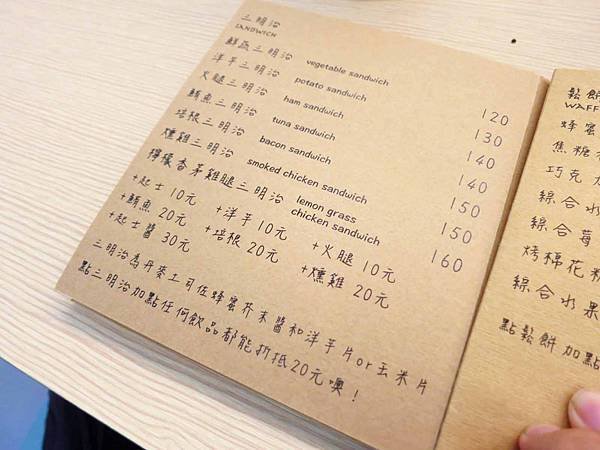 三明治
SANDWICH
鮮蔬三明治 vegetable sandwich 120
洋芋三明治 potato sandwich 130
火腿三明治 ham sandwich 140
鮪魚三明治 tuna sandwich 140
培根三明治 bacon sandwich 150
燻雞三明治 smoked chicken sandwich 150
檸檬香茅雞腿三明治 lemon grass chicken sandwich 160
+起士 10元 +洋芋 10元 +火腿 10元
+鮪魚 20元 +培根 20元 +燻雞 20元
+起士醬 30元
三明治為丹麥土司佐蜂蜜芥末醬和洋芋片or玉米片
點三明治加點任何飲品都能折抵20元噢！
鬆餅
WAFF
蜂蜜
焦糖
巧克
綜合水
綜合莓
烤棉花糖
綜合水果
點鬆餅加點